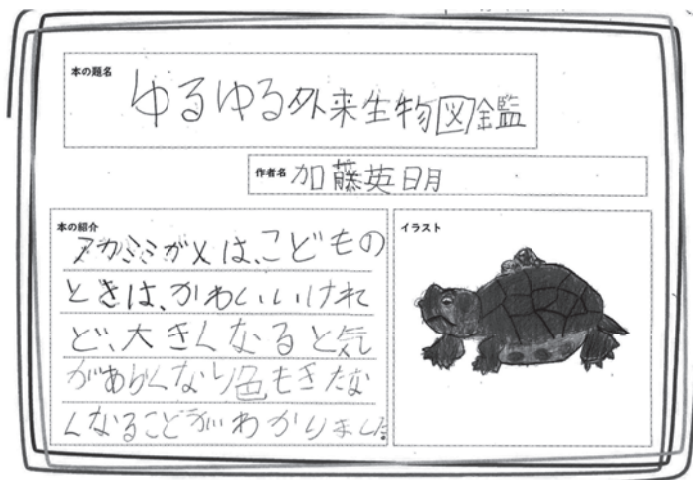 本の題名
ゆるゆる外来生物図鑑
作者名 加藤英明
本の紹介
アカミミガメは、こどもの
ときは、かわいいけれ
ど、大きくなると気
があらくなり色もきたな
くなることがわかりました
イラスト